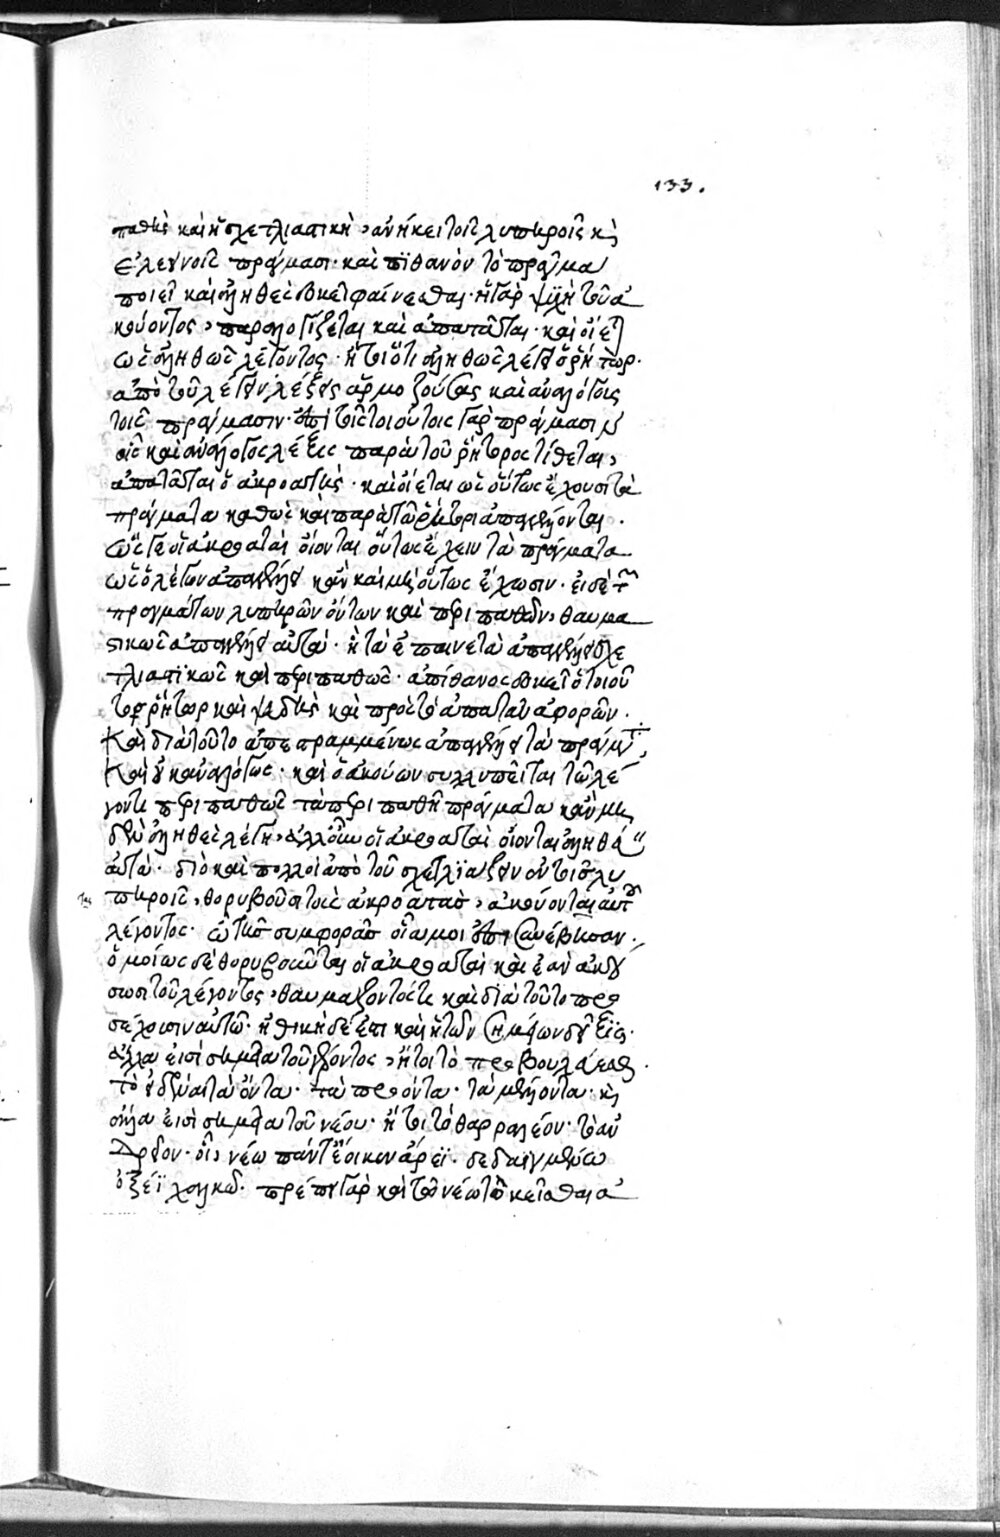 133.
παθὴς καὶ ἡ σχετλιαστικὴ, ἀνήκει τοῖς λυπηροῖς κὶ
ἐλεεινοῖς πράγμασι· καὶ πϊθανὸν τὸ πρᾶγμα
ποιεῖ καὶ ἀληθὲς δοκεῖ φαίνεσθαι· ἡ γὰρ ψυχὴ τοῦ ἀ
κούοντος, παραλογίζεται καὶ ἀπατᾶται· καὶ οἴεται
ὡς ἀληθῶς λέγοντος· ἤτοι ὅτι ἀληθῶς λέγει ὁ ῥήτωρ·
ἀπὸ τοῦ λέγειν λέξεις ἁρμοζούσας καὶ ἀναλόγους
τοῖς πράγμασιν· ἐπὶ τοῖς τοιούτοις γὰρ πράγμασιν
οἷς καὶ ἀνάλογος λέξις παρὰ τοῦ ῥήτορος τίθεται,
ἀπατᾶται ὁ ἀκροατὴς· καὶ οἴεται ὡς οὕτως ἔχουσι τὰ
πράγματα καθὼς καὶ παρὰ τῶ ῥήτορι ἀπαγγέλονται.
ὥστε οἱ ἀκροαταὶ οἴονται οὕτως ἔχειν τὰ πράγματα
ὡς ὁ λέγων ἀπαγγέλει κἂν καὶ μὴ οὕτως ἔχωσιν· εἰ δέ τις
πραγμάτων λυπηρῶν ὄντων καὶ περιπαθῶν, θαυμα
στικῶς ἀπαγγέλει αὐτά· ἢ τὰ ἐπαινετὰ ἀπαγγέλει σχε
τλιαστϊκῶς καὶ περιπαθῶς· ἀπίθανος δοκεῖ ὁ τοιοῦ
τος ῥήτωρ καὶ ψευδὴς καὶ πρὸς τὸ ἀπατᾶν ἀφορῶν·
Καὶ διὰ τοῦτο ἀπεπραμμένως ἀπαγγέλει τὰ πράγματα,
Καὶ οὐκ ἀναλόγως· καὶ ὁ ἀκούων συλλυπεῖται τῶ λέ
γοντι περιπαθῶς τὰ περιπαθῆ πράγματα κἂν μη
δὲν ἀληθὲς λέγη, ἀλλ' ὅμως οἱ ἀκροαταὶ οἴονται ἀληθῆ
αὐτά· διὸ καὶ πολλοὶ ἀπὸ τοῦ σχετλϊάζειν ἐν τοῖς λυ
πηροῖς, θορυβοῦσι τοὺς ἀκροατὰς, ἀκούοντας αὐτῶν
τας
λέγοντος· ὢ τῆς συμφορᾶς οἵα μοι ἐπισυνέβησαν·
ὁμοίως δὲ θορυβοῦνται οἱ ἀκροαταὶ καὶ ἐὰν ἀκού
σωσι τοῦ λέγοντος, θαυμάζοντός τι καὶ διὰ τοῦτο προ
σέχουσιν αὐτῶ· ἠθικὴ δέ ἐστι καὶ ἡ τῶν σημείων δεῖξις·
ἄλλα εἰσὶ σημεῖα τοῦ γέροντος, ἤτοι τὸ προβουλεύεσθαι·
τὸ εἰδέναι τὰ ὄντα· τὰ προόντα· τὰ μέλλοντα· κὶ
ἄλλα εἰσὶ σημεῖα τοῦ νέου· ἤτοι τὸ θαρραλέον· τὸ ἀν
δρεῖον· οἷον, νέω πάντ' ἐέοικεν ἀρέϊ· δεδαϊγμένω
ὀξέϊ χαλκῶ· πρέπει γὰρ καὶ τὸ νέω τὸ κεῖσθαι ἀ